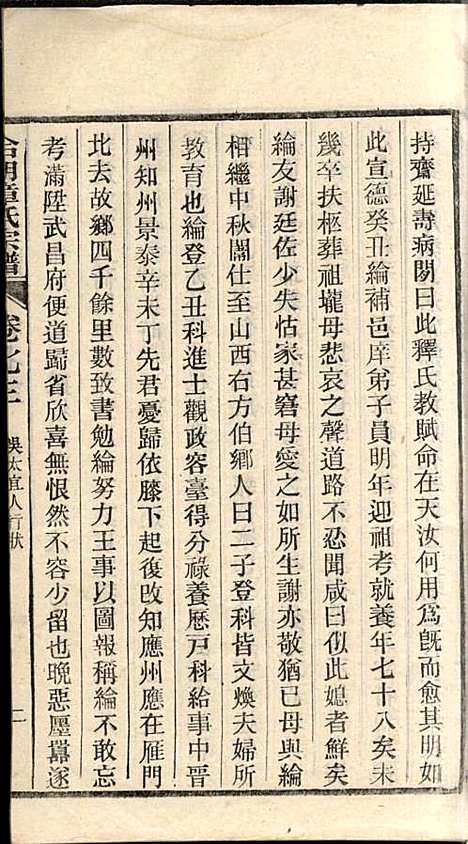 持齋延壽病閒曰此釋氏教賦命在天汝何用爲旣而愈其明如
此宣德癸丑綸補邑庠弟子員明年迎祖考就養年七十八矣未
幾卒扶柩葬祖壠母悲哀之聲道路不忍聞咸曰似此媳者鮮矣
綸友謝廷佐少失怙家甚窘母愛之如所生謝亦敬猶己母與綸
相繼中秋闈仕至山西右方伯鄉人曰二子登科皆文煥夫婦所
教育也綸登乙丑科進士觀政容臺得分祿養歷戸科給事中晋
州知州景泰辛未丁先君憂歸依膝下起復改知應州應在雁門
北去故鄉四千餘里數致書勉綸努力王事以圖報稱綸不敢忘
考滿陞武昌府便道歸省欣喜無恨然不容少留也晩惡壓囂遂
章氏宗譜
卷之三
吳太宜人行狀
二